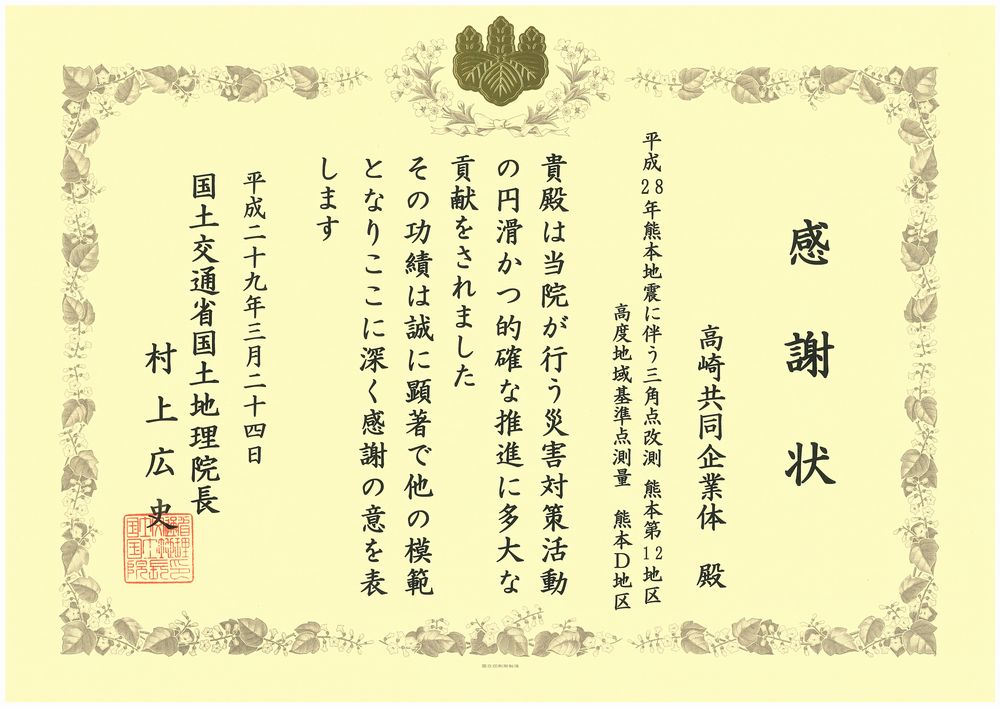 感謝状
高崎共同企業体 殿
平成28年熊本地震に伴う三角点改測 熊本第12地区
高度地域基準点測量 熊本D地区
貴殿は当院が行う災害対策活動
の円滑かつ的確な推進に多大な
貢献をされました
その功績は誠に顕著で他の模範
となりここに深く感謝の意を表
します
平成二十九年三月二十四日
国土交通省国土地理院長
村上広史
国立印刷局製造